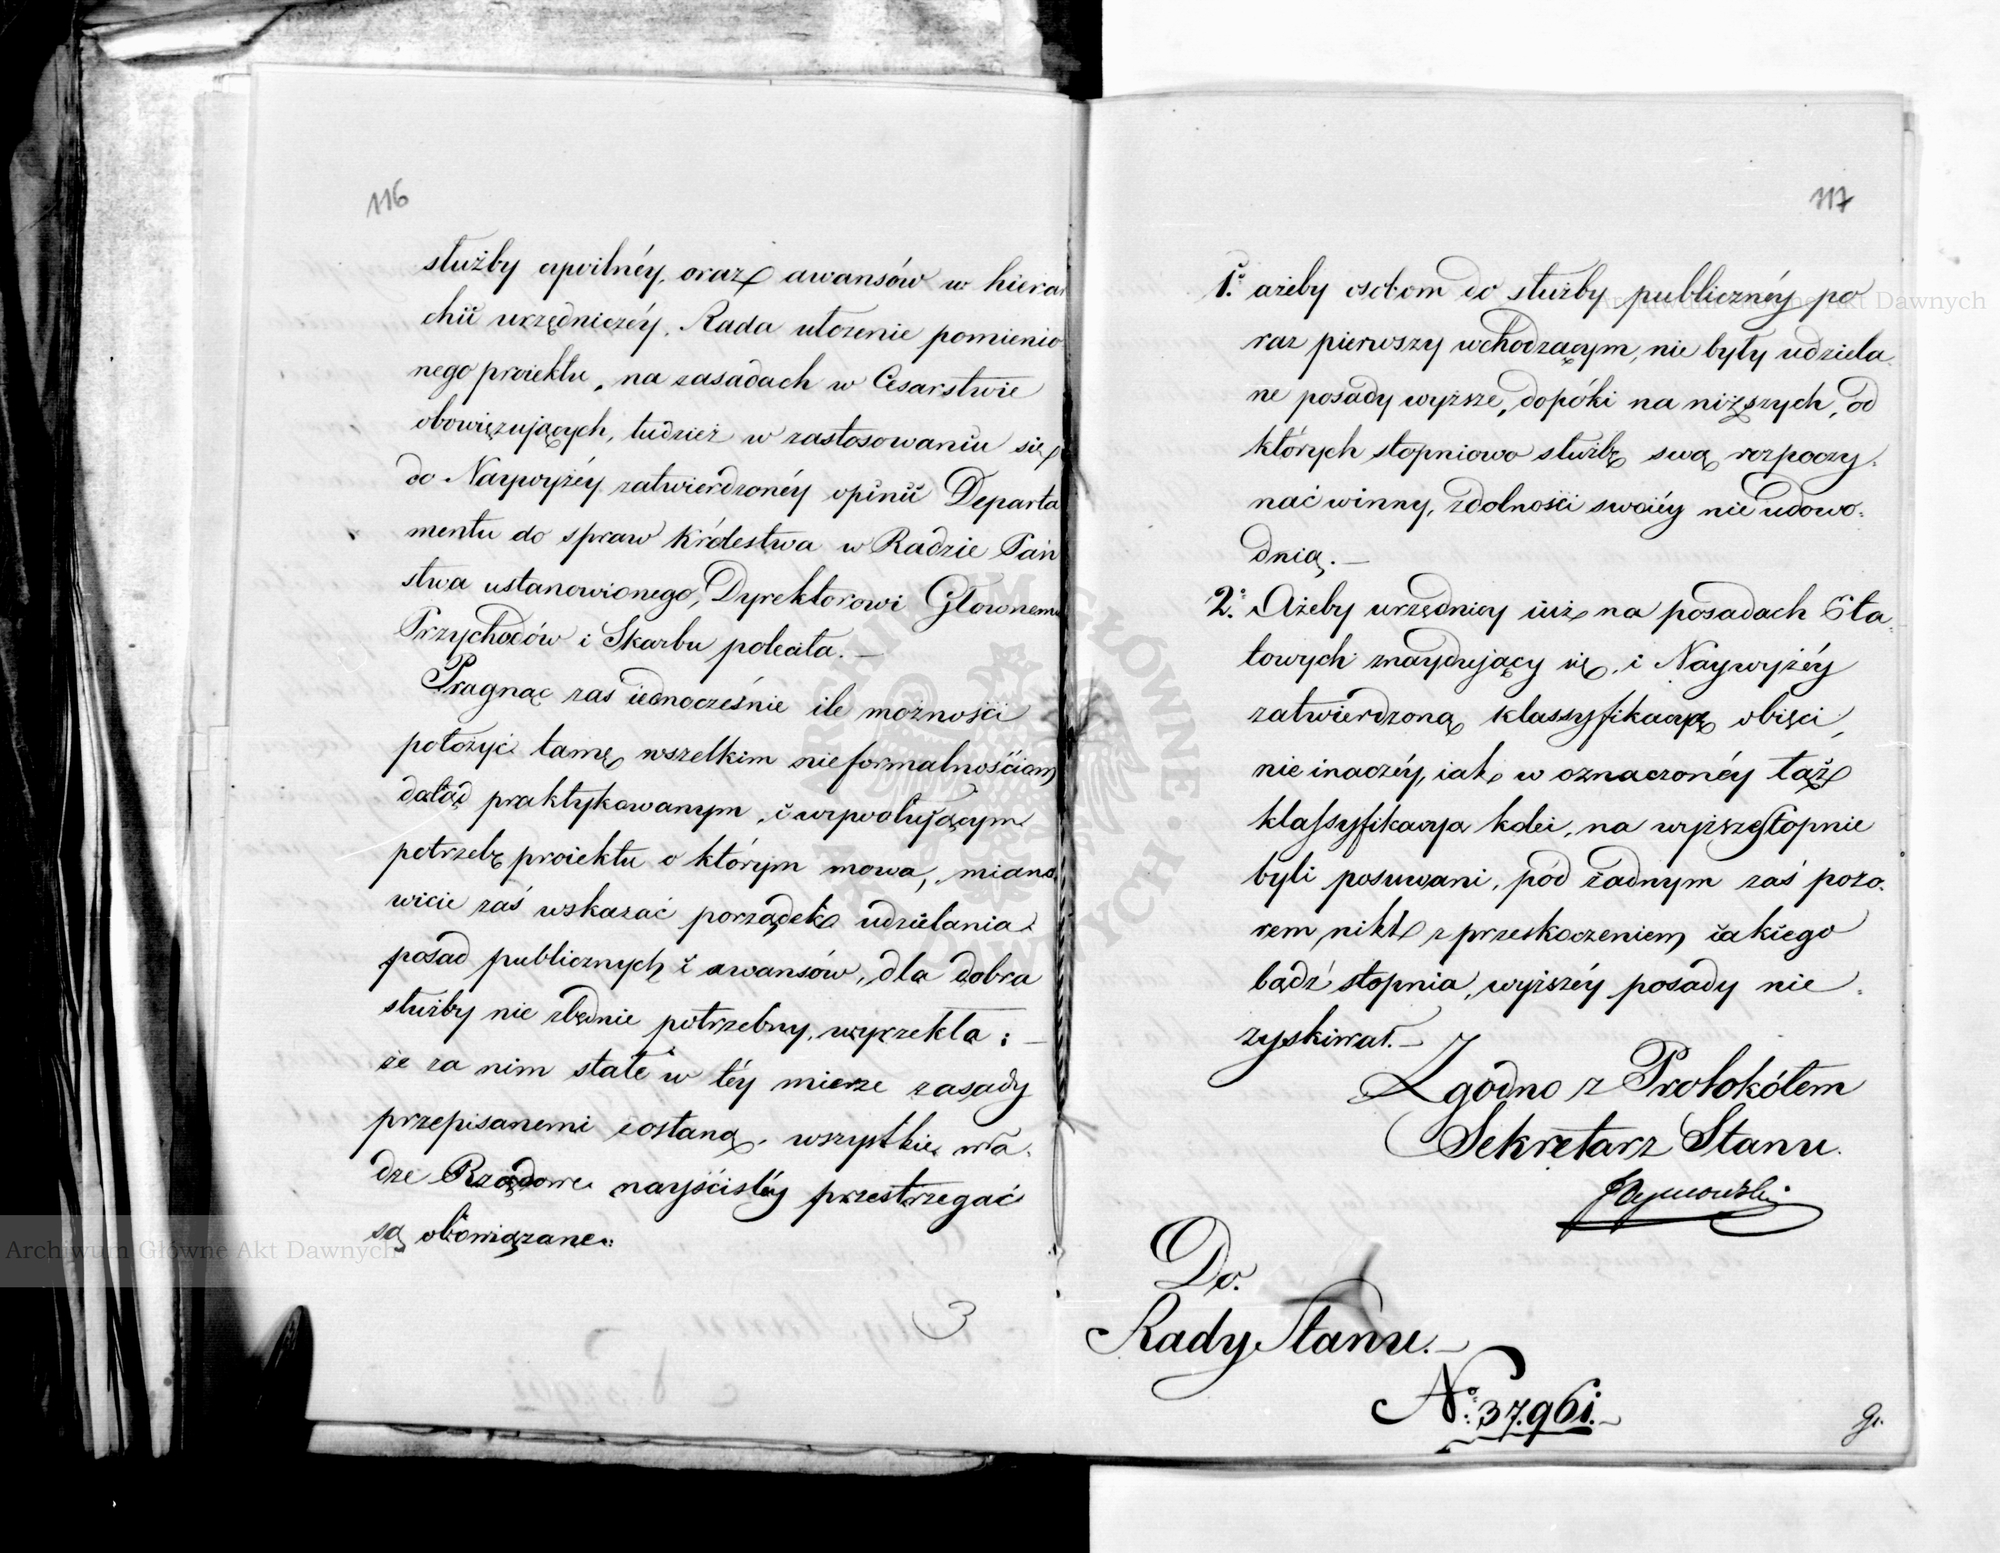 116
służby cywilnéy, oraz awansów w hierar
chii urzędniczéy. Rada ułożenie pomienio
nego proiektu, na zasadach w Cesarstwie
obowięzuiących, tudzież w zastosowaniu się
do Naywyżéy zatwierdzonéy opinii Departa
mentu do spraw Królestwa w Radzie Pań
stwa ustanowionego, Dyrektorowi Głownemu
Przychodów i Skarbu poleciła.—
Pragnąc zas iednocześnie ile możności
położyć tamę wszelkim nieformalnościom
dotąd praktykowanym, i wywołuiącym
potrzebę proiektu o którym mowa, miano
wicie zaś wskazać porządek udzielania
posad publicznych i awansów, dla dobra
służby nie zbędnie potrzebny, wyrzekła: —
że za nim stałe w téy mierze zasady
przepisanemi zostaną, wszystkie wła-
dze Rządowe nayściśléy przestrzegać
są obowiązane:
3
117
1.º ażeby osobom do służby publicznéy po
raz pierwszy wchodzącym, nie były udziela-
ne posady wyższe, dopóki na niższych, od
których stopniowo służbę swą rozpoczy-
nać winny, zdolności swoiéy nie udowo-
dnią.—
2.º Ażeby urzędnicy iuż na posadach Eta-
towych znayduiący się, i Naywyżéy
zatwierdzoną klassyfikacyą obięci,
nie inaczéy, iak w oznaczonéy tąż
klassyfikacya kolei, na wyższe stopnie
byli posuwani, pód żadnym zaś pozo-
rem nikt z przeskoczeniem iakiego
bądź stopnia, wyższéy posady nie
zyskiwał.—
Zgodno z Protokółem
Sekretarz Stanu.
JTymowski
Do.
Rady Stanu.—
Nº: 37.961.
Archiwum Główne Akt Dawnych
Archiwum Główne Akt Dawnych
ARCHIWUM GŁÓWNE AKT DAWNYCH